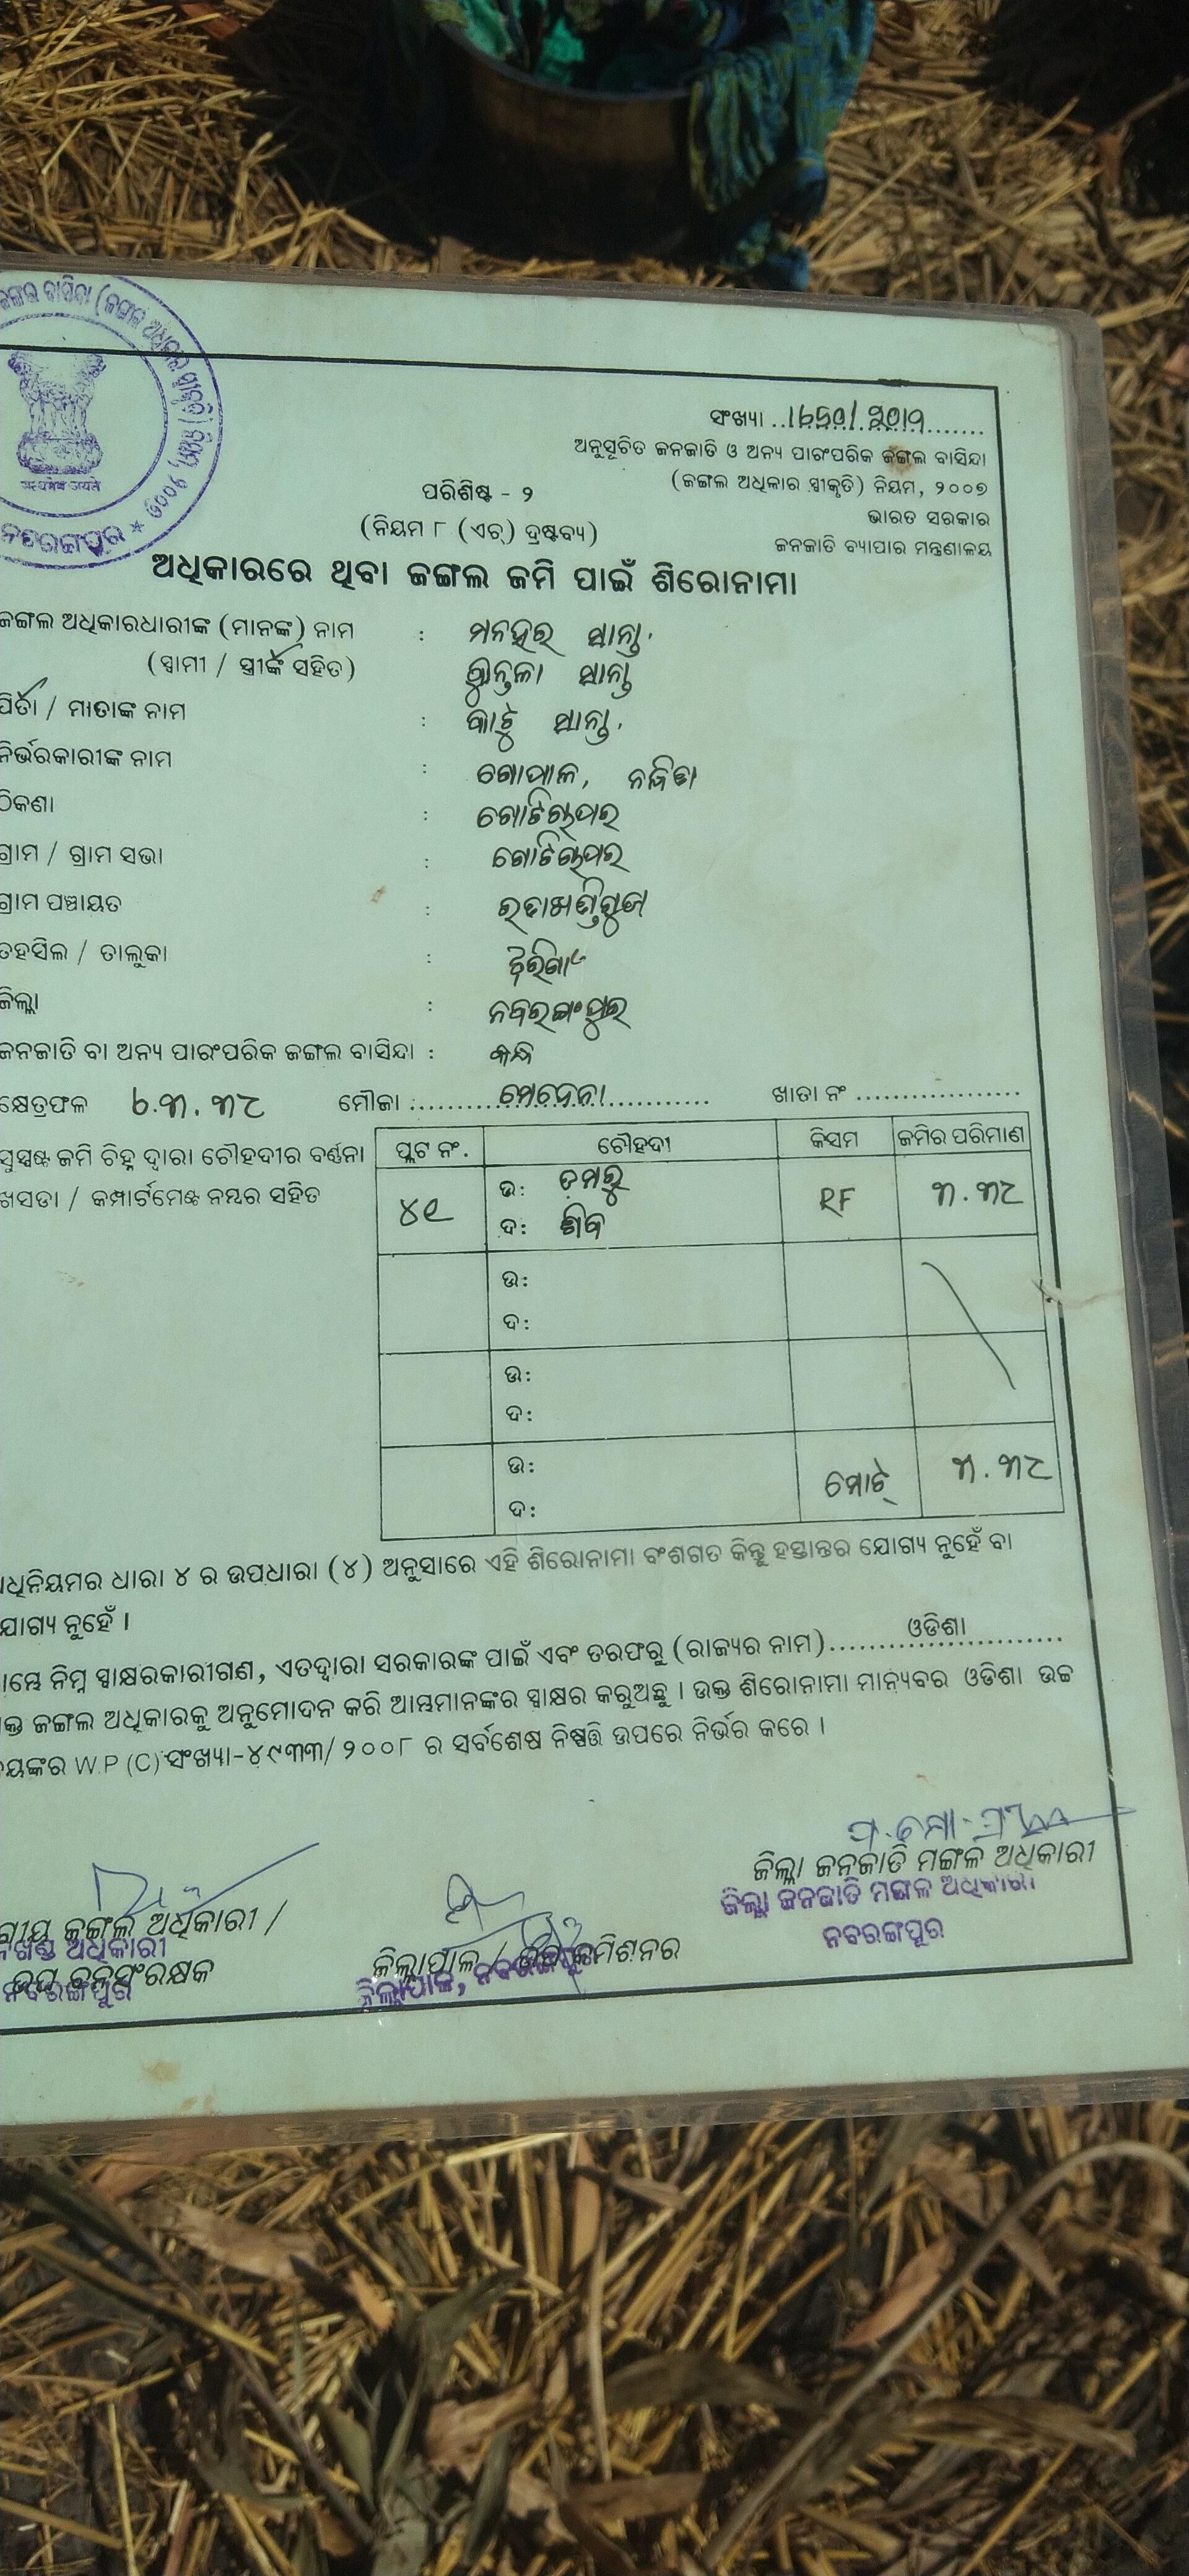 ଜଙ୍ଗଲ ବାସିନ୍ଦା (ଜଙ୍ଗଲ ଅଧିକାର ସ୍ୱୀକୃତି) ନିୟମ, ୨୦୦୭ * ନବରଙ୍ଗପୁର
सत्यमेव जयते
ସଂଖ୍ୟା
ଅନୁସୂଚିତ ଜନଜାତି ଓ ଅନ୍ୟ ପାରଂପରିକ ଜଙ୍ଗଲ ବାସିନ୍ଦା
(ଜଙ୍ଗଲ ଅଧିକାର ସ୍ୱୀକୃତି) ନିୟମ, ୨୦୦୭
ଭାରତ ସରକାର
ଜନଜାତି ବ୍ୟାପାର ମନ୍ତ୍ରଣାଳୟ
ପରିଶିଷ୍ଟ - ୨
(ନିୟମ ୮ (ଏଚ୍) ଦ୍ରଷ୍ଟବ୍ୟ)
ଅଧିକାରରେ ଥିବା ଜଙ୍ଗଲ ଜମି ପାଇଁ ଶିରୋନାମା
ଜଙ୍ଗଲ ଅଧିକାରଧାରୀଙ୍କ (ମାନଙ୍କ) ନାମ : ମନହର ସାନ୍ତା
(ସ୍ୱାମୀ / ସ୍ତ୍ରୀଙ୍କ ସହିତ) କୁନ୍ତଳା ସାନ୍ତା
ପିତା / ମାତାଙ୍କ ନାମ : ସାନ୍ତା
ନିର୍ଭରକାରୀଙ୍କ ନାମ : ଗୋପାଳ,
ଠିକଣା :
ଗ୍ରାମ / ଗ୍ରାମ ସଭା :
ଗ୍ରାମ ପଞ୍ଚାୟତ :
ତହସିଲ / ତାଲୁକା :
ଜିଲ୍ଲା : ନବରଙ୍ଗପୁର
ଜନଜାତି ବା ଅନ୍ୟ ପାରଂପରିକ ଜଙ୍ଗଲ ବାସିନ୍ଦା : କନ୍ଧ
କ୍ଷେତ୍ରଫଳ ୭.୩.୩୮ ମୌଜା ମେଦେନା ଖାତା ନଂ
ସୁସ୍ପଷ୍ଟ ଜମି ଚିହ୍ନ ଦ୍ୱାରା ଚୌହଦୀର ବର୍ଣ୍ଣନା
ଖସଡା / କମ୍ପାର୍ଟମେଣ୍ଟ ନମ୍ବର ସହିତ
ପ୍ଲଟ ନଂ. ଚୌହଦୀ କିସମ ଜମିର ପରିମାଣ
୪୧ ଉ: ଡମରୁ RF ୩.୩୮
ଦ: ଶିବ
ଉ:
ଦ:
ଉ:
ଦ:
ଉ: ମୋଟ୍ ୩.୩୮
ଦ:
ଧିନିୟମର ଧାରା ୪ ର ଉପଧାରା (୪) ଅନୁସାରେ ଏହି ଶିରୋନାମା ବଂଶଗତ କିନ୍ତୁ ହସ୍ତାନ୍ତର ଯୋଗ୍ୟ ନୁହେଁ ବା
ଯୋଗ୍ୟ ନୁହେଁ ।
ନିମ୍ନ ସ୍ୱାକ୍ଷରକାରୀଗଣ, ଏତଦ୍ୱାରା ସରକାରଙ୍କ ପାଇଁ ଏବଂ ତରଫରୁ (ରାଜ୍ୟର ନାମ) ଓଡିଶା
କ୍ତ ଜଙ୍ଗଲ ଅଧିକାରକୁ ଅନୁମୋଦନ କରି ଆମ୍ଭମାନଙ୍କର ସ୍ୱାକ୍ଷର କରୁଅଛୁ । ଉକ୍ତ ଶିରୋନାମା ମାନ୍ୟବର ଓଡିଶା ଉଚ୍ଚ
ୟଙ୍କର W.P (C) ସଂଖ୍ୟା-୪୯୩୩/୨୦୦୮ ର ସର୍ବଶେଷ ନିଷ୍ପତ୍ତି ଉପରେ ନିର୍ଭର କରେ ।
ଜିଲ୍ଲା ଜନଜାତି ମଙ୍ଗଳ ଅଧିକାରୀ
ଜିଲ୍ଲା ଜନଜାତି ମଙ୍ଗଳ ଅଧିକାରୀ
ନବରଙ୍ଗପୁର
ଜଙ୍ଗଲ ଅଧିକାରୀ /
ଅଧିକାରୀ
ଉପ ବନସଂରକ୍ଷକ
ନବରଙ୍ଗପୁର
ଜିଲ୍ଲାପାଳ / ଉପ କମିଶନର
ଜିଲ୍ଲାପାଳ, ନବରଙ୍ଗପୁର